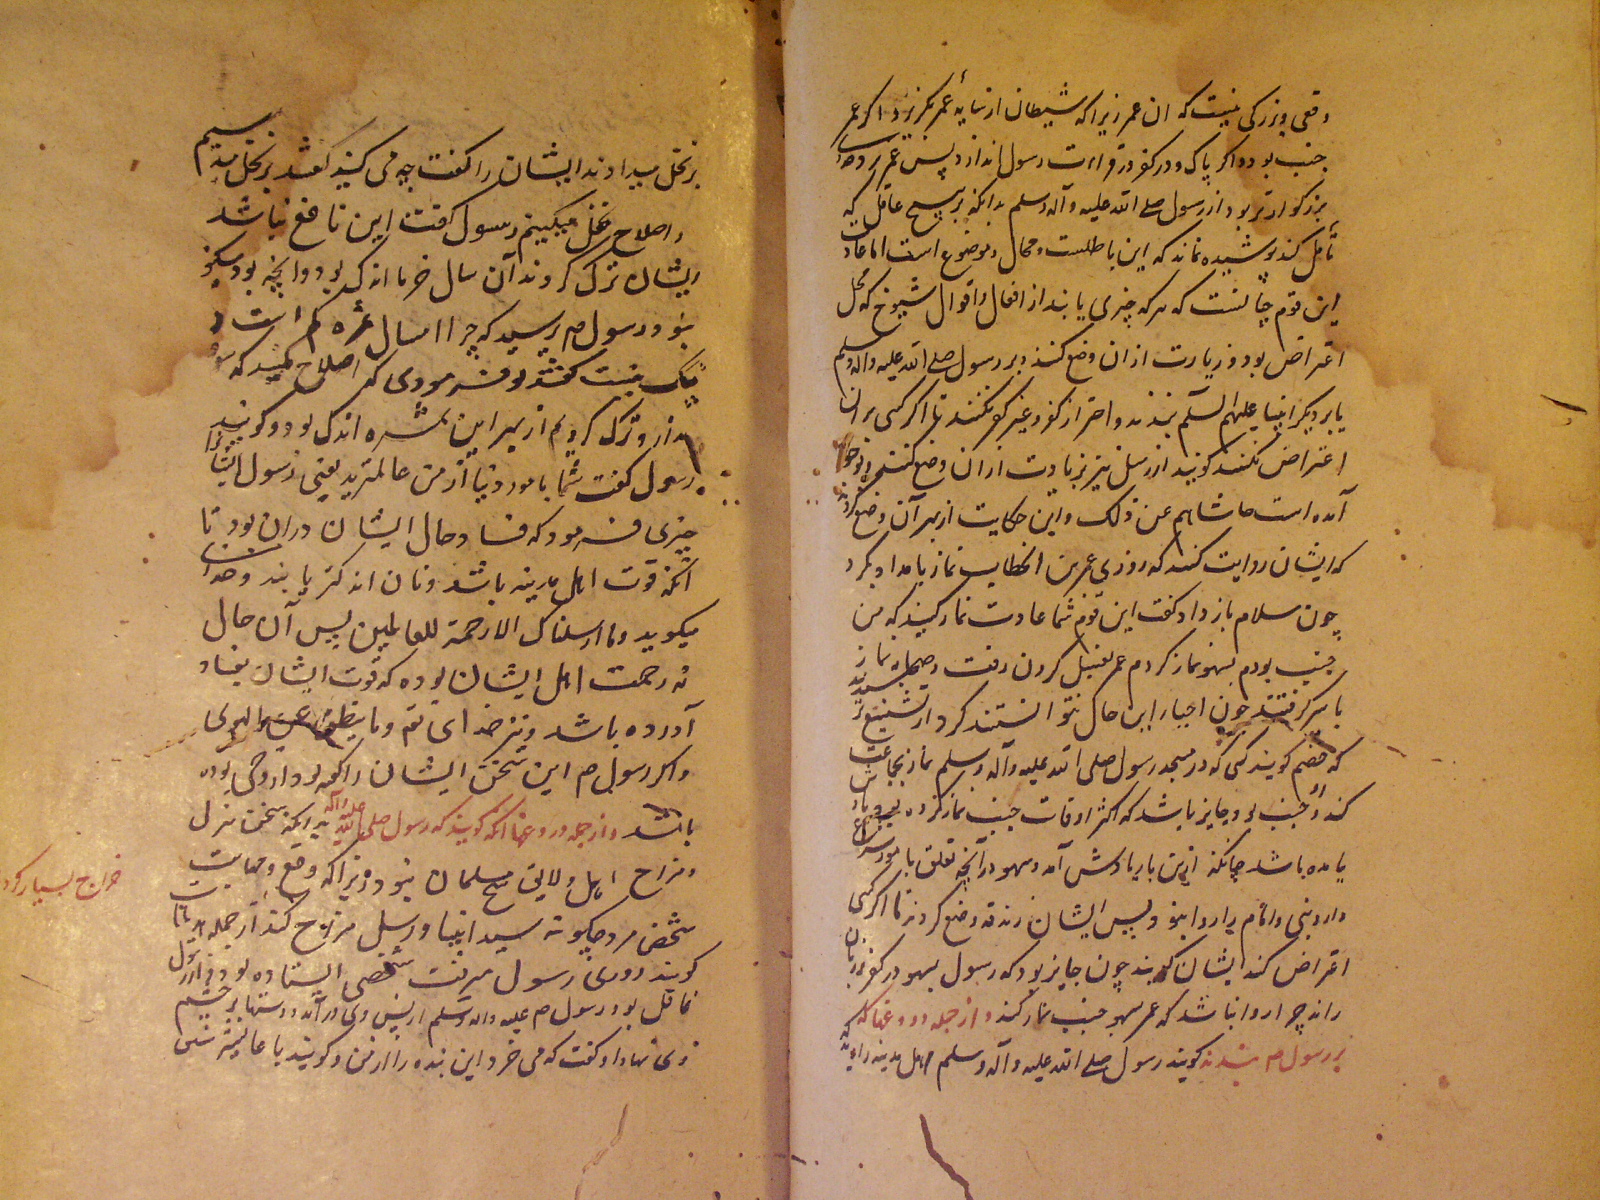 وقعی و بزرگی نیست که ان عمر زیرا که شیطان از سایه عمر بگریزد و اگر عمر
جنب بود و اگر پاک و در کفر در قراءت رسول اندازد پس عمر نزد خدا
بزرکوارتر بود از رسول صلی الله علیه وآله وسلم بدانکه بر هیچ عاقل که
تأمل کند پوشیده نماند که این باطلست و محال و موضوع است اما عادت
این قوم چنانست که هر که چیزی یابند از افعال و اقوال شیوخ که محل
اعتراض بود و زیارت ازان وضع کنند و بر رسول صلی الله علیه واله وسلم
یا بر دیگر انبیا علیهم السلم بندند و احتراز کفر و غیر کفر نکنند تا اگر کسی بران
اعتراض نکند گویند از رسل نیز زیادت ازان وضع کنند
آمده است حاشاهم عن ذلک و این حکایت از بهر آن وضع کردند
که ایشان روایت کنند که روزی عمر بن الخطاب نماز بامداد بکرد
چون سلام باز داد گفت این قوم شما عادت نماز کنید که من
جنب بودم بسهو نماز کردم عمر بغسل کردن رفت و صحابه نماز
با سر گرفتند چون اخبار این حال نتوانستند کرد از تشنیع
که خصم گویند کسی که در مسجد رسول صلی الله علیه وآله وسلم نماز بجماعت
کند و جنب بود جایز باشد که اکثر اوقات جنب نماز کرده
یا مده باشد چنانکه این بار یادش آمد و سهو در آنچه تعلق بامور شرع
دارد نبی و امام را روا بنود پس ایشان زندقه وضع کردند تا اگر کسی
اعتراض کند ایشان گویند چون جایز بود که رسول بسهو در کفر بر زبان
راند چرا روا نباشد که عمر بسهو جنب نماز کند و از جمله دروغها که
بر رسول م بندند گویند رسول صلی الله علیه وآله وسلم اهل مدینه را دید که
بر نخل میدادند ایشان را گفت چه می کنید گفتند بر نخل میدهیم
و اصلاح نخل میکنیم رسول گفت این نافع نباشد
ایشان ترک کردند آن سال خرما اندک بود و آنچه بود نیکو
بنود رسول م پرسید که چرا امسال ثمره کم است و
نیک نیست گفتند تو فرمودی که اصلاح مکنید که سود
ندارد ترک کردیم از بهر این ثمره اندک بود و گویند
رسول گفت شما بامور دنیا از من عالمترید یعنی رسول ایشانرا
چیزی فرمود که فساد حال ایشان دران بود تا
آنکه قوت اهل مدینه باشد و نان اندکتر یابند و خدا
میگوید وما ارسلناک الا رحمة للعالمین پس آن حال
نه رحمت اهل ایشان بوده که قوت ایشان بفساد
آورده باشد و نیز خدای تع وما ینطق عن الهوی
و اگر رسول م این سخن ایشان را گفته بود از وحی بوده
باشد و از جمله دروغها آنکه گویند که رسول صلی الله علیه وآله بدانکه سخن هزل
و مزاح اهل ولایق هیچ مسلمان بنود زیرا که وقع و مهابت
شخص مرد چگونه سید انبیا و رسل مزاح کند از جمله
گویند روزی رسول میرفت شخصی ایستاده بود و از رسول
غافل بود رسول م علیه واله وسلم از پس وی درآمد و دستها بر چشم
وی نهاد و گفت که می خرد این بنده را از من و گویند با عایشه شبی
خراج بسیار کرد